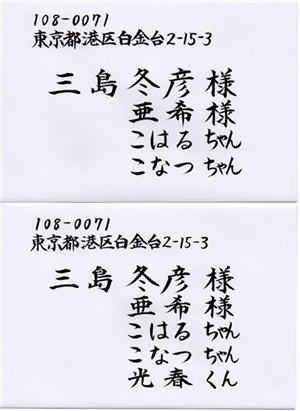 108-0071
東京都港区白金台2-15-3
三島冬彦様
亜希様
こはるちゃん
こなつちゃん
108-0071
東京都港区白金台2-15-3
三島冬彦様
亜希様
こはるちゃん
こなつちゃん
光春くん